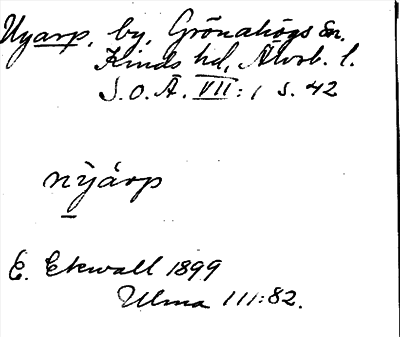 Nyarp, by, Grönahögs sn.
Kinds hd, Älvsb. l.
S.O.Ä. VII:1 s. 42
nỳárp
E. Ekwall 1899
Ulma 111:82.